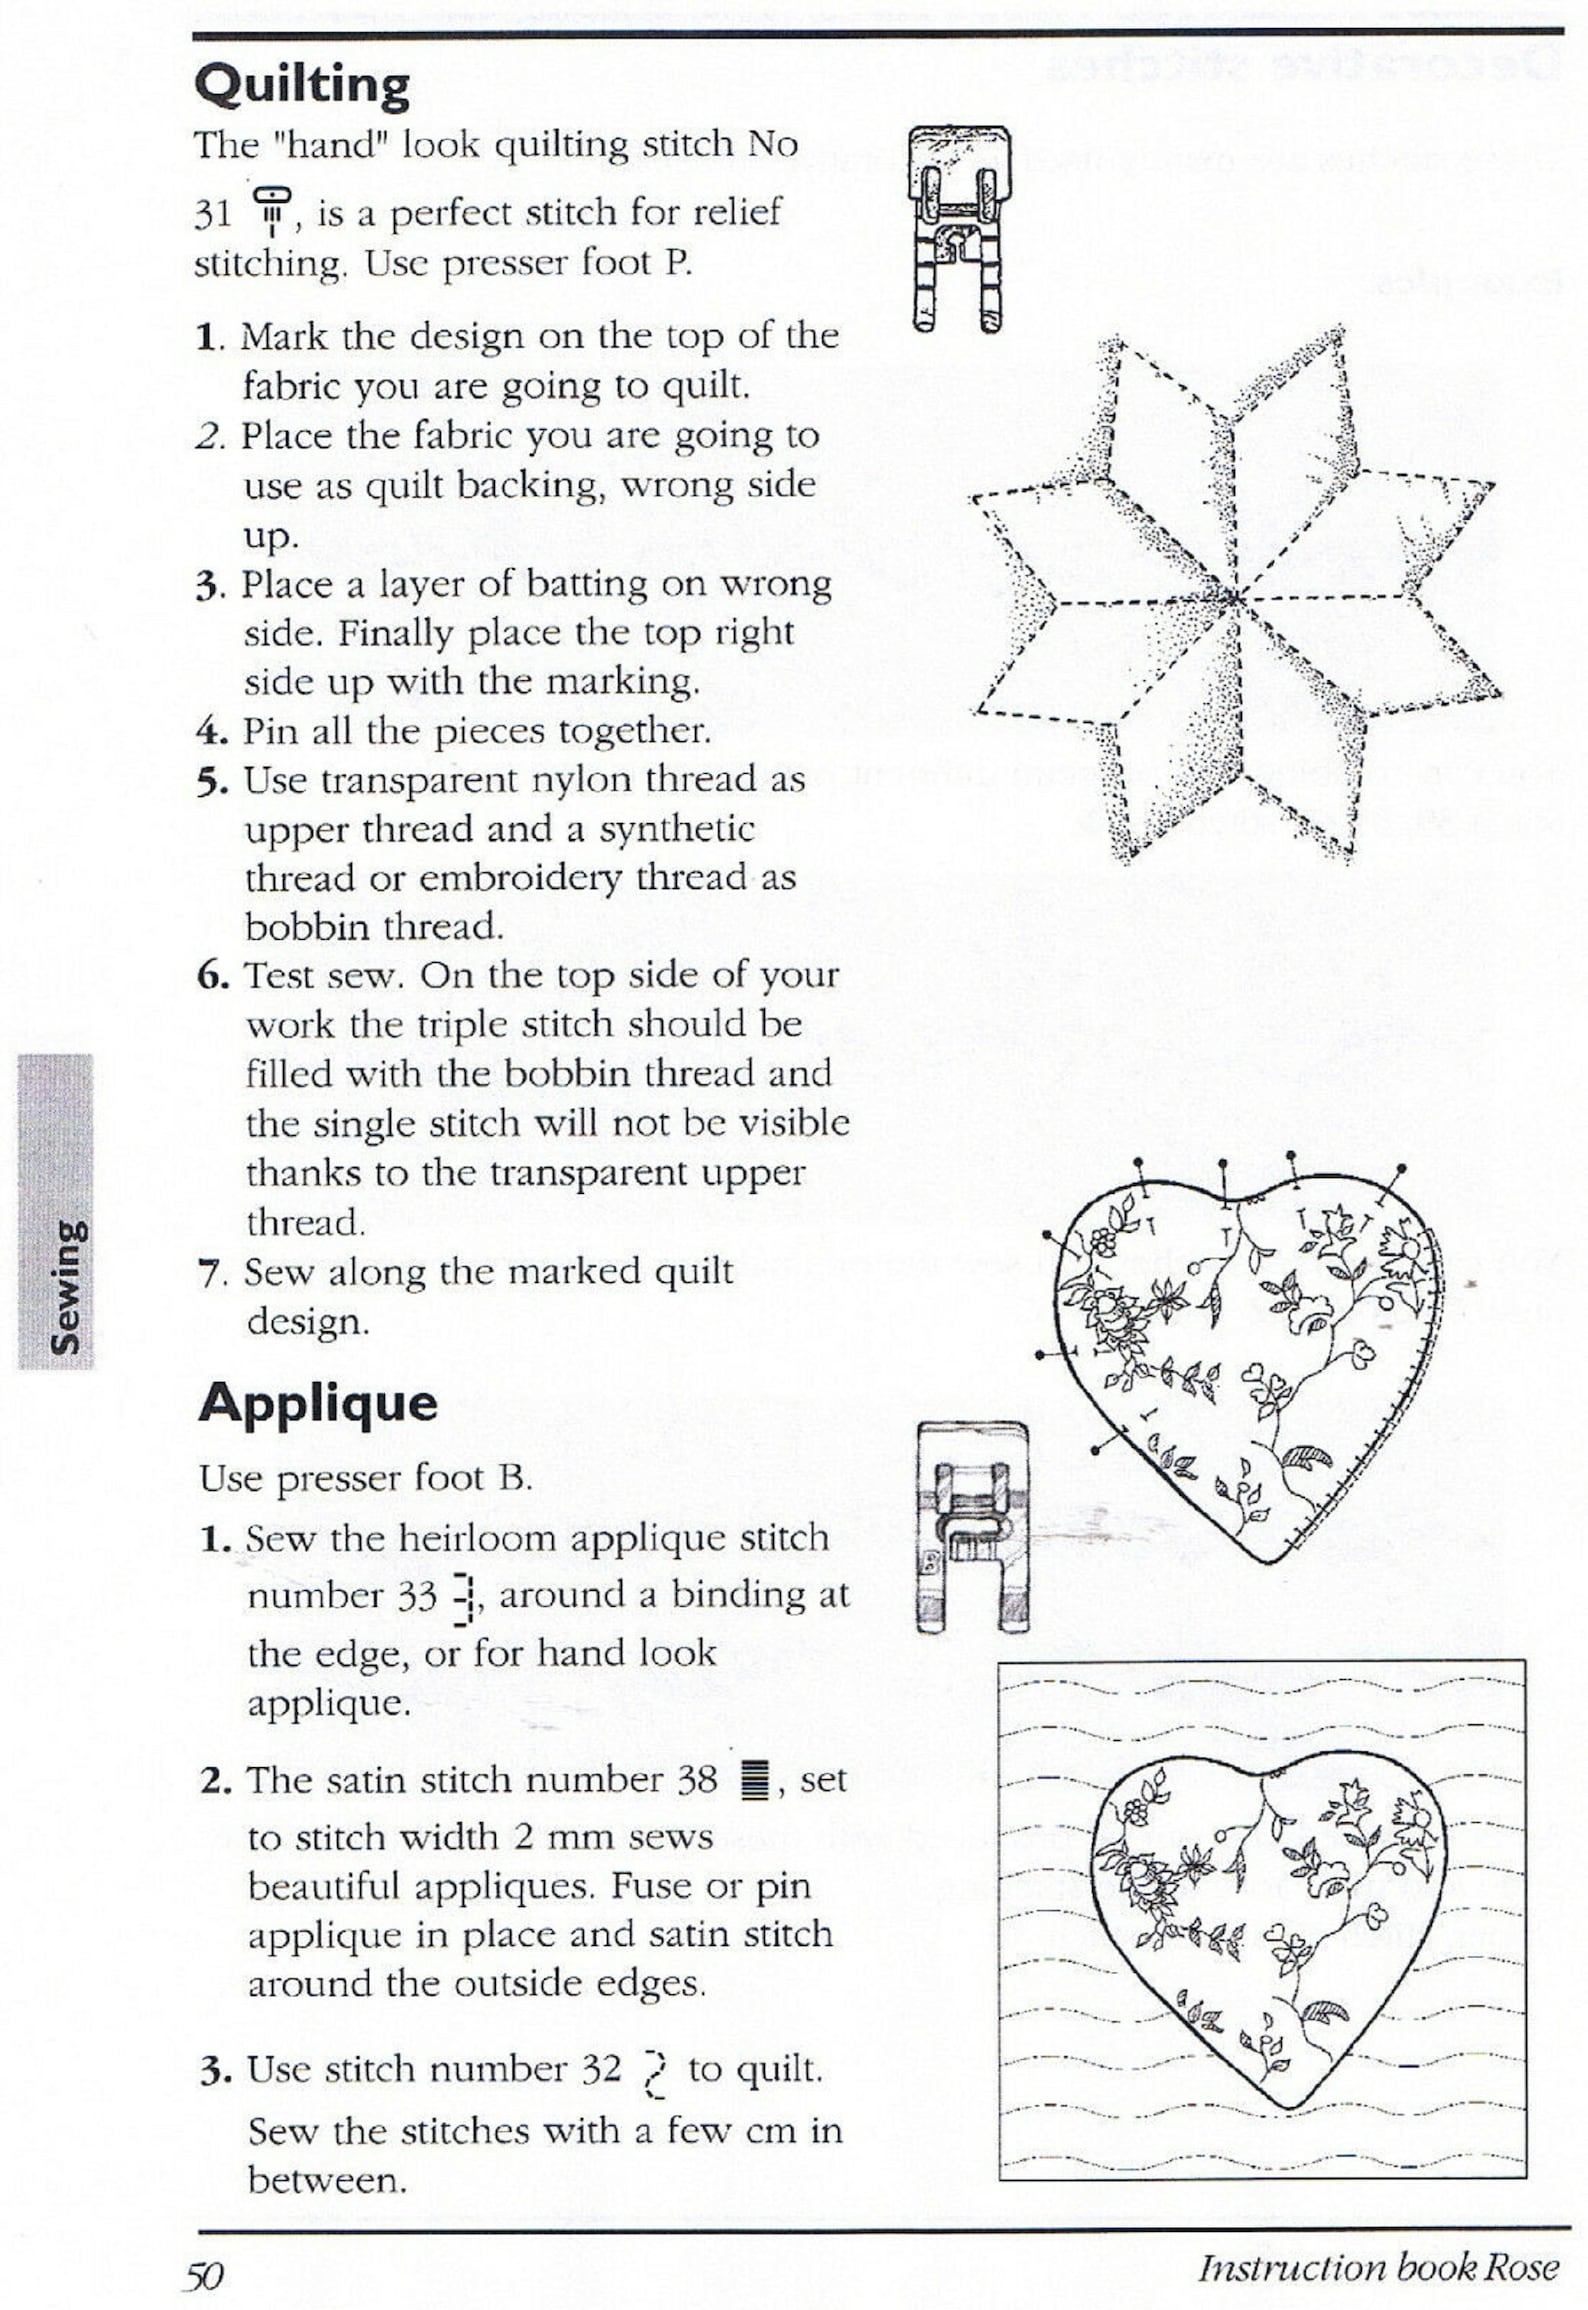 Quilting
The "hand" look quilting stitch No
31 , is a perfect stitch for relief
stitching. Use presser foot P.
1. Mark the design on the top of the
fabric you are going to quilt.
2. Place the fabric you are going to
use as quilt backing, wrong side
up.
3. Place a layer of batting on wrong
side. Finally place the top right
side up with the marking.
4. Pin all the pieces together.
5. Use transparent nylon thread as
upper thread and a synthetic
thread or embroidery thread as
bobbin thread.
6. Test sew. On the top side of your
work the triple stitch should be
filled with the bobbin thread and
the single stitch will not be visible
thanks to the transparent upper
thread.
7. Sew along the marked quilt
design.
Sewing
Applique
Use presser foot B.
1. Sew the heirloom applique stitch
number 33 , around a binding at
the edge, or for hand look
applique.
B
2. The satin stitch number 38 , set
to stitch width 2 mm sews
beautiful appliques. Fuse or pin
applique in place and satin stitch
around the outside edges.
3. Use stitch number 32 to quilt.
Sew the stitches with a few cm in
between.
50
Instruction book Rose